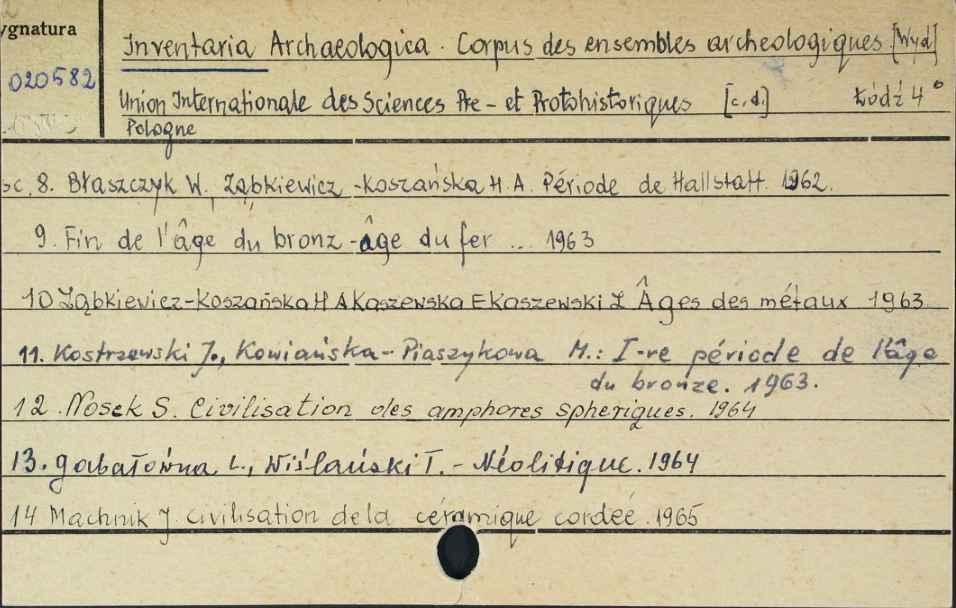 ygnatura
Inventaria Archaeologica. Corpus des ensembles archeologiques [Wyd]
020582
Union Internationale des Sciences Pre- et Protohistoriques [c.d.] Łódź 4°
Pologne
sc. 8. Błaszczyk W., Ząbkiewicz-Koszańska H.A. Période de Hallstatt. 1962.
9. Fin de l'âge du bronz-âge du fer ... 1963
10 Ząbkiewicz-Koszańska H A Kaszewska E Kaszewski Z Âges des métaux 1963
11. Kostrzewski J., Kowiańska-Piaszykowa M.: I-re période de l'âge
du bronze. 1963.
12. Nosek S. Civilisation des amphores spheriques. 1964
13. Gabałówna L., Wiślański T. - Néolitique. 1964
14 Machnik J civilisation de la céramique cordeé. 1965